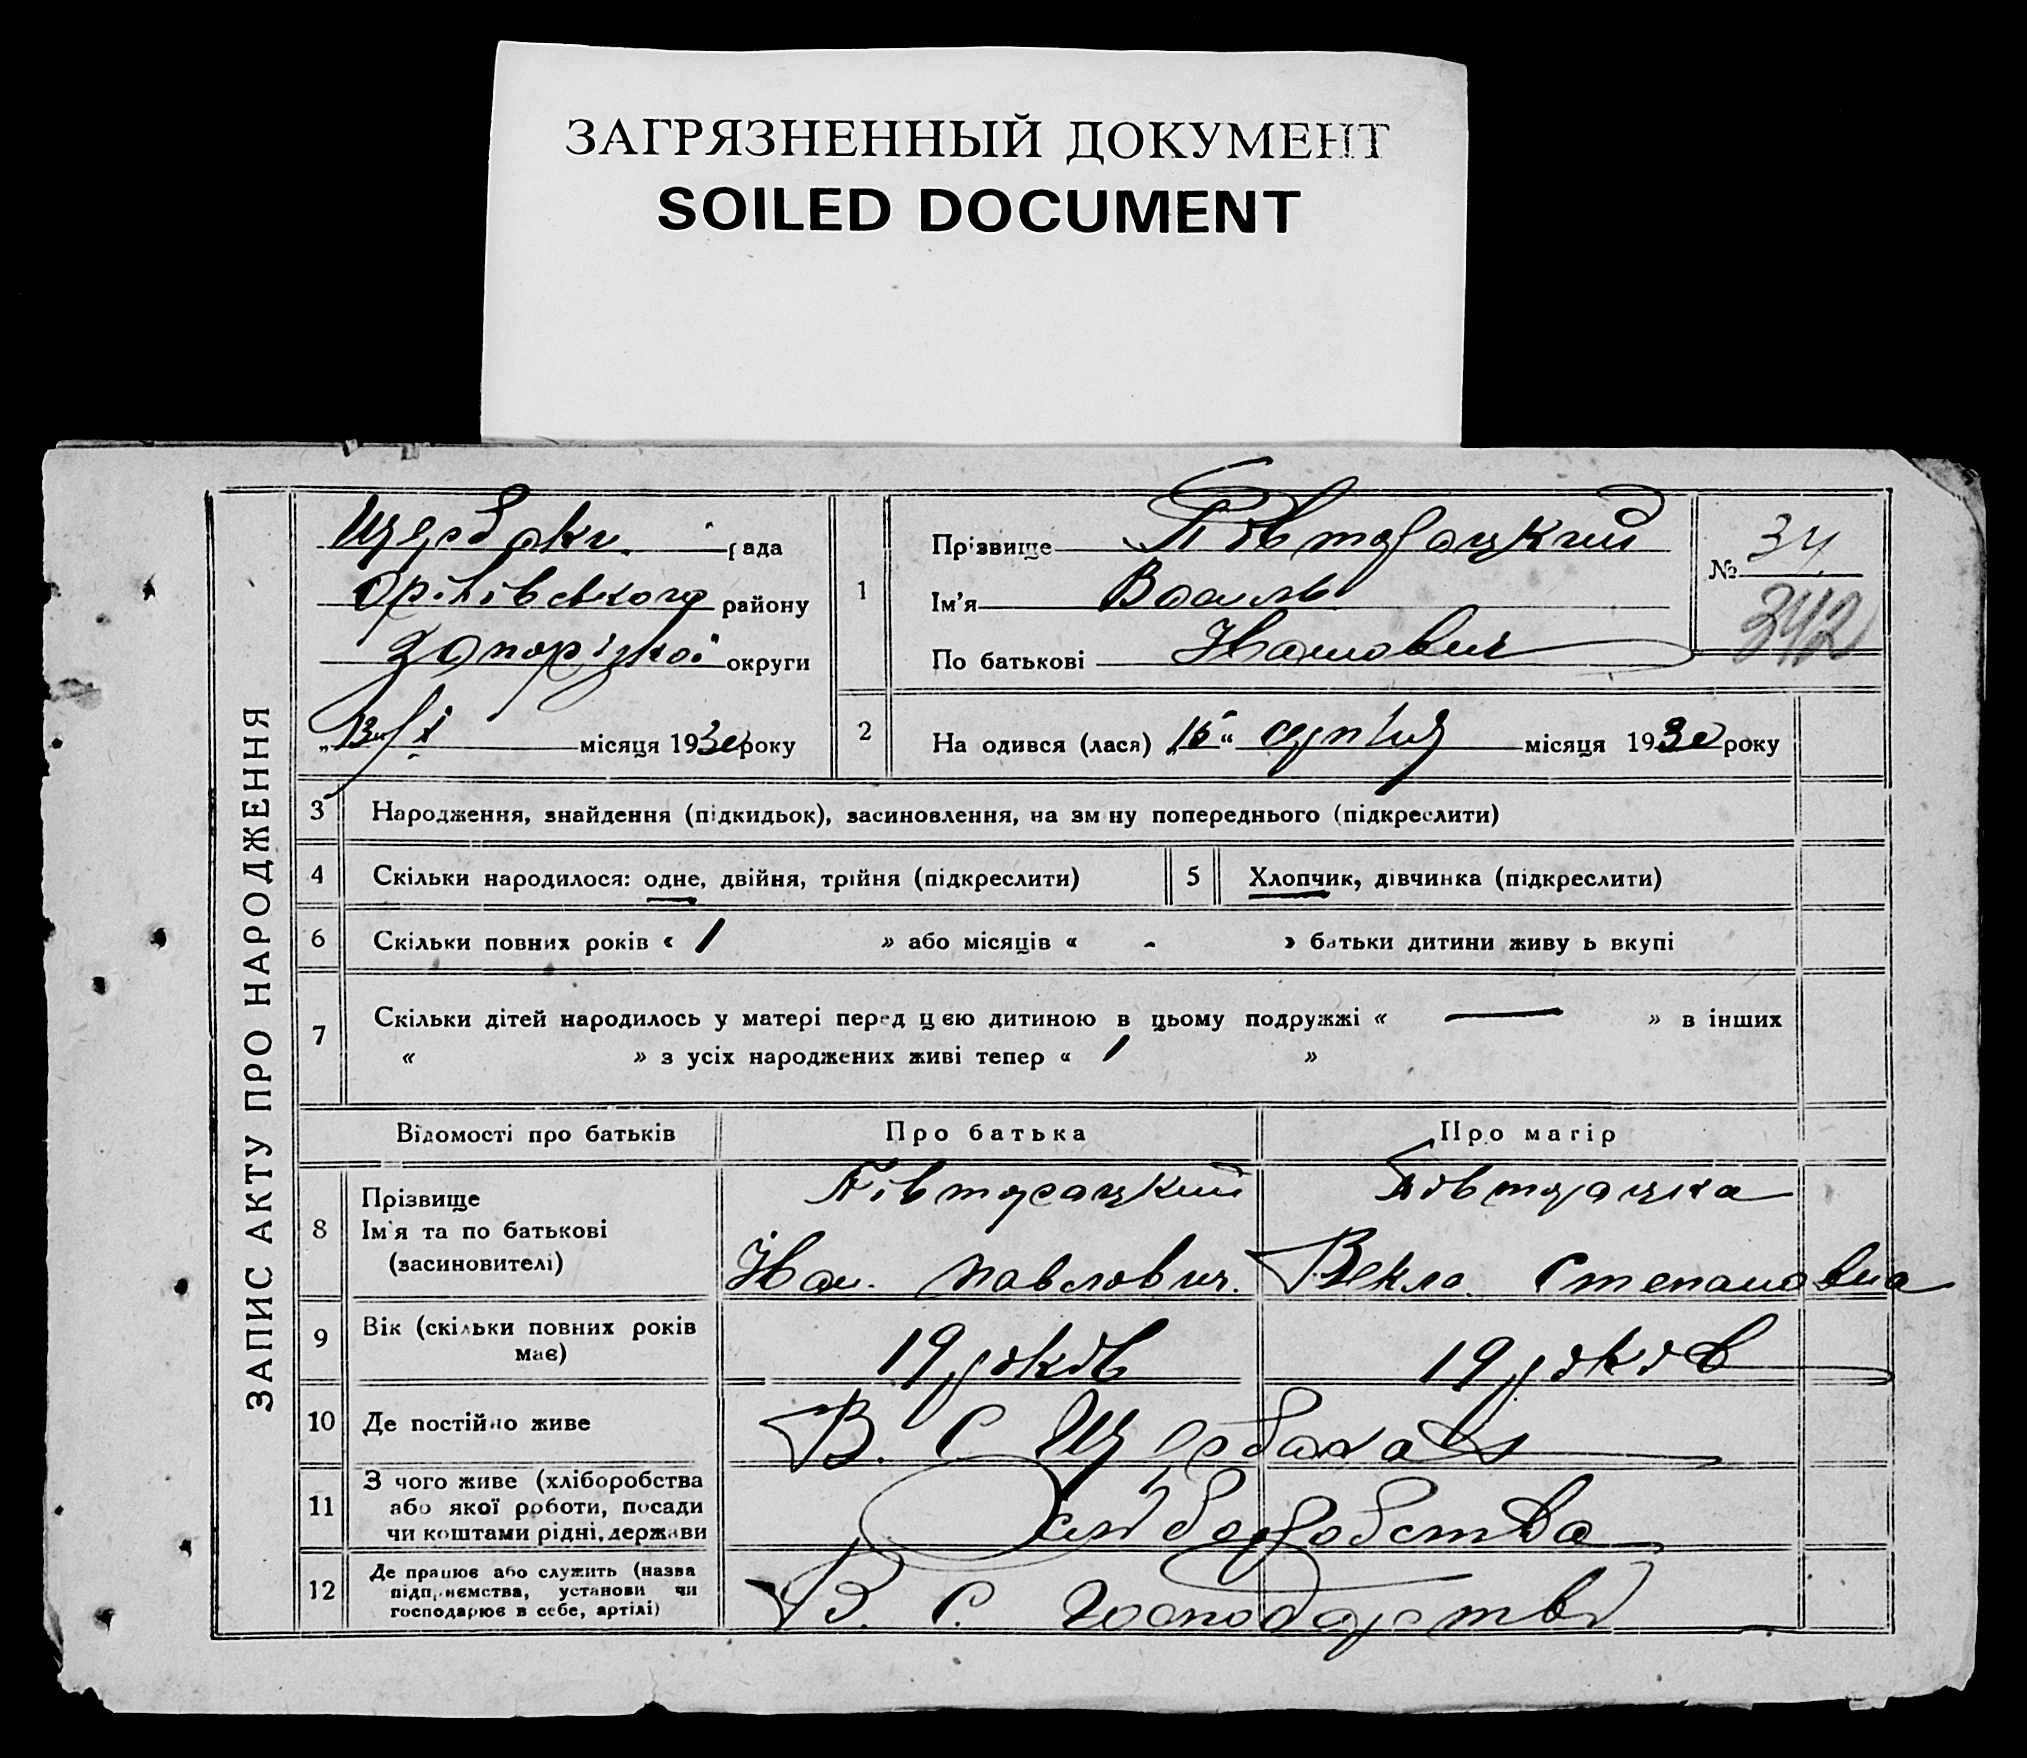 ЗАГРЯЗНЕННЫЙ ДОКУМЕНТ
SOILED DOCUMENT
ЗАПИС АКТУ ПРО НАРОДЖЕННЯ
Щербаки рада
Оріхівського району
Запорізької округи
місяця 1930 року
1
Прізвище Півторацкий
Ім'я Василь
По батькові Иванович
№ 34
342
2 На одився (лася) „15“ серпня місяця 1930 року
3 Народження, знайдення (підкидьок), засиновлення, на зм ну попереднього (підкреслити)
4 Скільки народилося: одне, двійня, трійня (підкреслити)
5 Хлопчик, дівчинка (підкреслити)
6 Скільки повних років « 1 » або місяців « - » батьки дитини живу ь вкупі
7 Скільки дітей народилось у матері перед цею дитиною в цьому подружжі « — » в інших
« » з усіх народжених живі тепер « 1 »
Відомості про батьків Про батька Про матір
8 Прізвище
Ім'я та по батькові
(засиновителі)
Півторацкий
Іван. Павлович.
Півторацка
Векла Степановна
9 Вік (скільки повних років
має)
19 років 19 років
10 Де постійно живе В. С Щербаках
11 З чого живе (хліборобства
або якої роботи, посади
чи коштами рідні, держави
хліборобства
12 Де працює або служить (назва
підпр.нємства, установи чи
господарює в себе, артілі)
В. С. господарстві